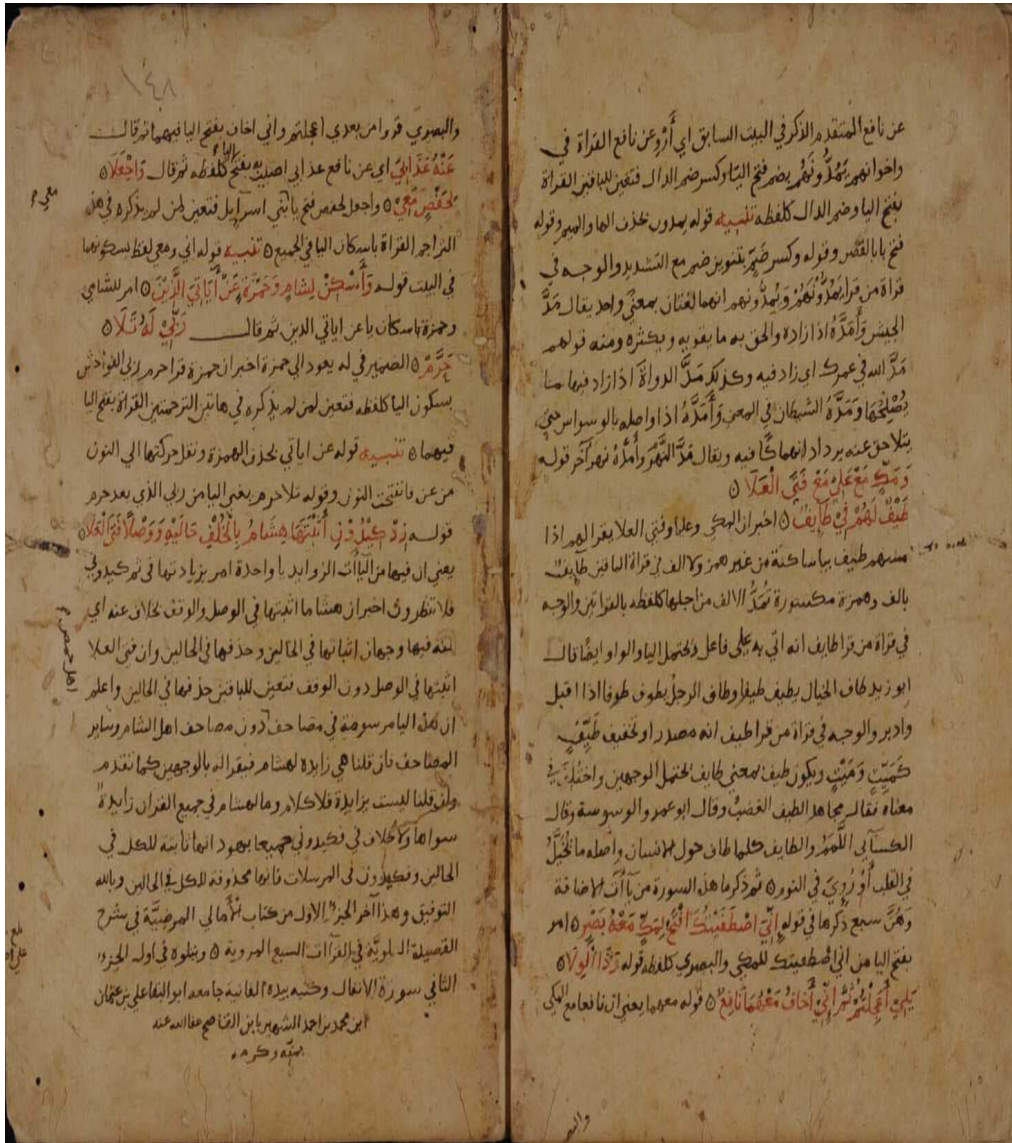 عن نافع المتقدم الذكر في البيت السابق اي أَرْوِ عن نافع القراة في
واخوانهم يُمِدُّونَهُم بضم فتح اليا وكسر ضم الدال فتعين للباقين القراة
بفتح اليا وضم الدال كلفظه تنبيه قوله يمدون بحذف الها والميم وقوله
فتح بابا لقصر وقوله وكسر ضَمٍّ بتنوين ضم مع التشديد والوجه في
قراة من قرا يَمُدُّونَهُمْ ويُمِدُّونهم انهما لغتان بمعنىً واحد يقال مَدَّ
الجيش وَأَمَدَّهُ اذا زاده والحق به ما يقويه ويكثره ومنه قولهم
مَدَّ الله في عمرك اي زاد فيه وكذلك مَدَّ الدواةَ اذا زاد فيها ما
يُصْلِحُهَا وَمَدَّهُ الشيطان في المعنى وَأَمَدَّهُ اذا واصله بالوسواس حتى
يتلاحق عنه يزداد انهماكًا فيه ويقال مَدَّ النَّهْرُ وأَمَدَّهُ نهر آخر قوله
وَمَكٍّ مَعْ عَلِيْ مَعْ فَتَى الْعَلَا ۞
طَيْفٌ لَهُمْ فِيْ طَايِفٌ ۞ اخبر ان المكي وعليا وفتى العلا يقرا لهم اذا
مسهم طيف بيا ساكنة من غير همز ولا الف في قراة الباقين طَايِفٌ
بالف وهمزة مكسورة تُمَدُّ الالف من اجلها كلفظه بالقراتين والوجه
في قراة من قرا طايف انه اتي به على فاعل ويحتمل اليا والواو ايضًا قال
ابو زيد طاف الخيال يطيف طيفا وطاف الرجل يطوف طوفا اذا اقبل
وادبر والوجه في قراة من قرا طيف انه مصدر او تخفيف طَيِّفٍ
كَمَيِّتٍ وَمَيْتٍ ويكون طيف بمعنى طايف يحتمل الوجهين واختلف في
معناه فقال مجاهد الطيف الغضب وقال ابو عمرو الوسوسة وقال
الكسآئي اللَّمَمُ والطايف كلما طاف حول الانسان واصله ما تَخَيَّلُ
في القلب أَوْ رُوِيَ في النوم ۞ ثم ذكر ما هذه السورة من يآات الاضافة
وَهُنَّ سبع ذكرها في قوله إِنِّيَ اصْطَفَيْتُكَ افْتَحْ لِمَكٍّ مَعْهُ بَصْرٍ ۞ امر
بفتح اليا من اني اصطفيتك للمكي والبصري كلفظه قوله وَذَا الْوِلَا ۞
يَلِيْ أَعَجِلْتُمْ ثُمَّ إِنِّيْ أَخَافُ مَعْهُمَا نَافِعٌ ۞ قوله معهما يعني ان نافعا مع المكي
والبـ
١٤٨
والبصري قروا من بعدي اعجلتم واني اخاف بفتح اليا فيهما ثم قال
عَنْهُ عَذَابِيَ اي عن نافع عذابي اصيب به بفتح الياء كلفظه ثم قال وَاجْعَلَا ۞
لِحَفْصٍ مَعِيْ ۞ واجعل لحفص فتح يا بني اسرآيل فتعين لمن لم يذكره في هذه
التراجم القراة باسكان اليا في الجميع ۞ تنبيه قوله اني ومعي لفظ بسكونهما
في البيت قوله وَأَسْكِنْ لِشَامٍ وَحَمْزَةٍ عَنَ ايَاتِيَ الَّذِينَ ۞ امر للشامي
وحمزة باسكان يا عن اياتي الذين ثم قال رَبِّيْ لَهُ تَلَا ۞
حَرَّمَ ۞ الضمير في له يعود الي حمزة اخبر ان حمزة قرا حرم ربي الفواحش
بسكون اليا كلفظه فتعين لمن لم يذكره في هاتين الترجمتين القراة بفتح اليا
فيهما ۞ تنبيه قوله عن اياتي بحذف الهمزة ونقل حركتها الي النون
من عن فانفتحت النون وقوله تلا حرم بغير اليا من ربي الذي بعد حرم
قوله زِدْ كِيْدُونِ أَثْبَتَهَا هِشَامُ بِالْخُلْفِ حَالَيْهِ وَوَصْلًا فَتَى الْعَلَا ۞
يعني ان فيها من اليآات الزوايد يا واحدة امر بزيادتها في ثم كيدوني
فلا تنظرون اخبر ان هشاما اثبتها في الوصل والوقف بخلاف عنه اي
له فيها وجهان اثباتها في الحالين وحذفها في الحالين وان فتى العلا
اثبتها في الوصل دون الوقف فتعين للباقين حذفها في الحالين واعلم
ان هذه اليا مرسومة في مصاحف دون مصاحف اهل الشام وساير
المصاحف فان قلنا هي زايدة لهشام فيقرا له بالوجهين كما تقدم
وان قلنا ليست بزايدة فلا كلام وما لهشام في جميع القران زايدة
سواها ولا خلاف في فكيدوني جميعا بهود انها ثابتة للكل في
الحالين وفكيدون في المرسلات فانها محذوفة للكل في الحالين وبالله
التوفيق وهذا آخر الجزء الاول من كتاب الامالي المرضيَّة في شرح
القصيدة العلويَّة في القرآات السبع المروية ۞ ويتلوه في اول الجزء
الثاني سورة الانفال وكتبه بيده الفانية جامعه ابو البقا علي بن عثمان
ابن محمد بن احمد الشهير بابن القاصح عفا الله عنه
بمنه وكرمه
معي
اهل حمص